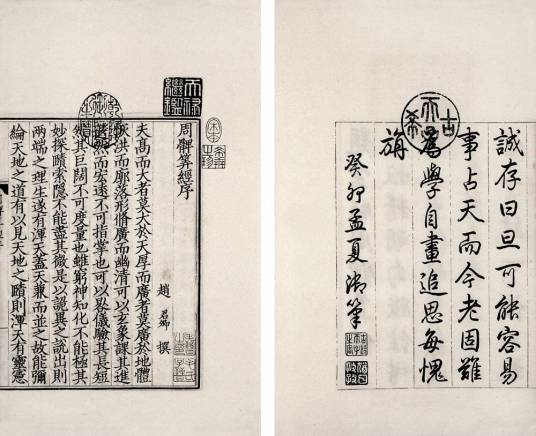 誠存曰旦可能容易
事占天而今老固難
為學自畫追思每愧
旃
癸卯孟夏御筆
古希天子
天祿繼鑑
周髀筭經序
趙君卿 撰
夫高而大者莫大於天厚而廣者莫廣於地體
恢洪而廓落形脩廣而幽清可以玄象課其進
然而宏遠不可指掌也可以晷儀驗其長短
然其巨闊不可度量也雖窮神知化不能極其
妙探賾索隱不能盡其微是以詭異之說出則
兩端之理生遂有渾天蓋天兼而並之故能彌
綸天地之道有以見天地之賾則渾天有靈憲